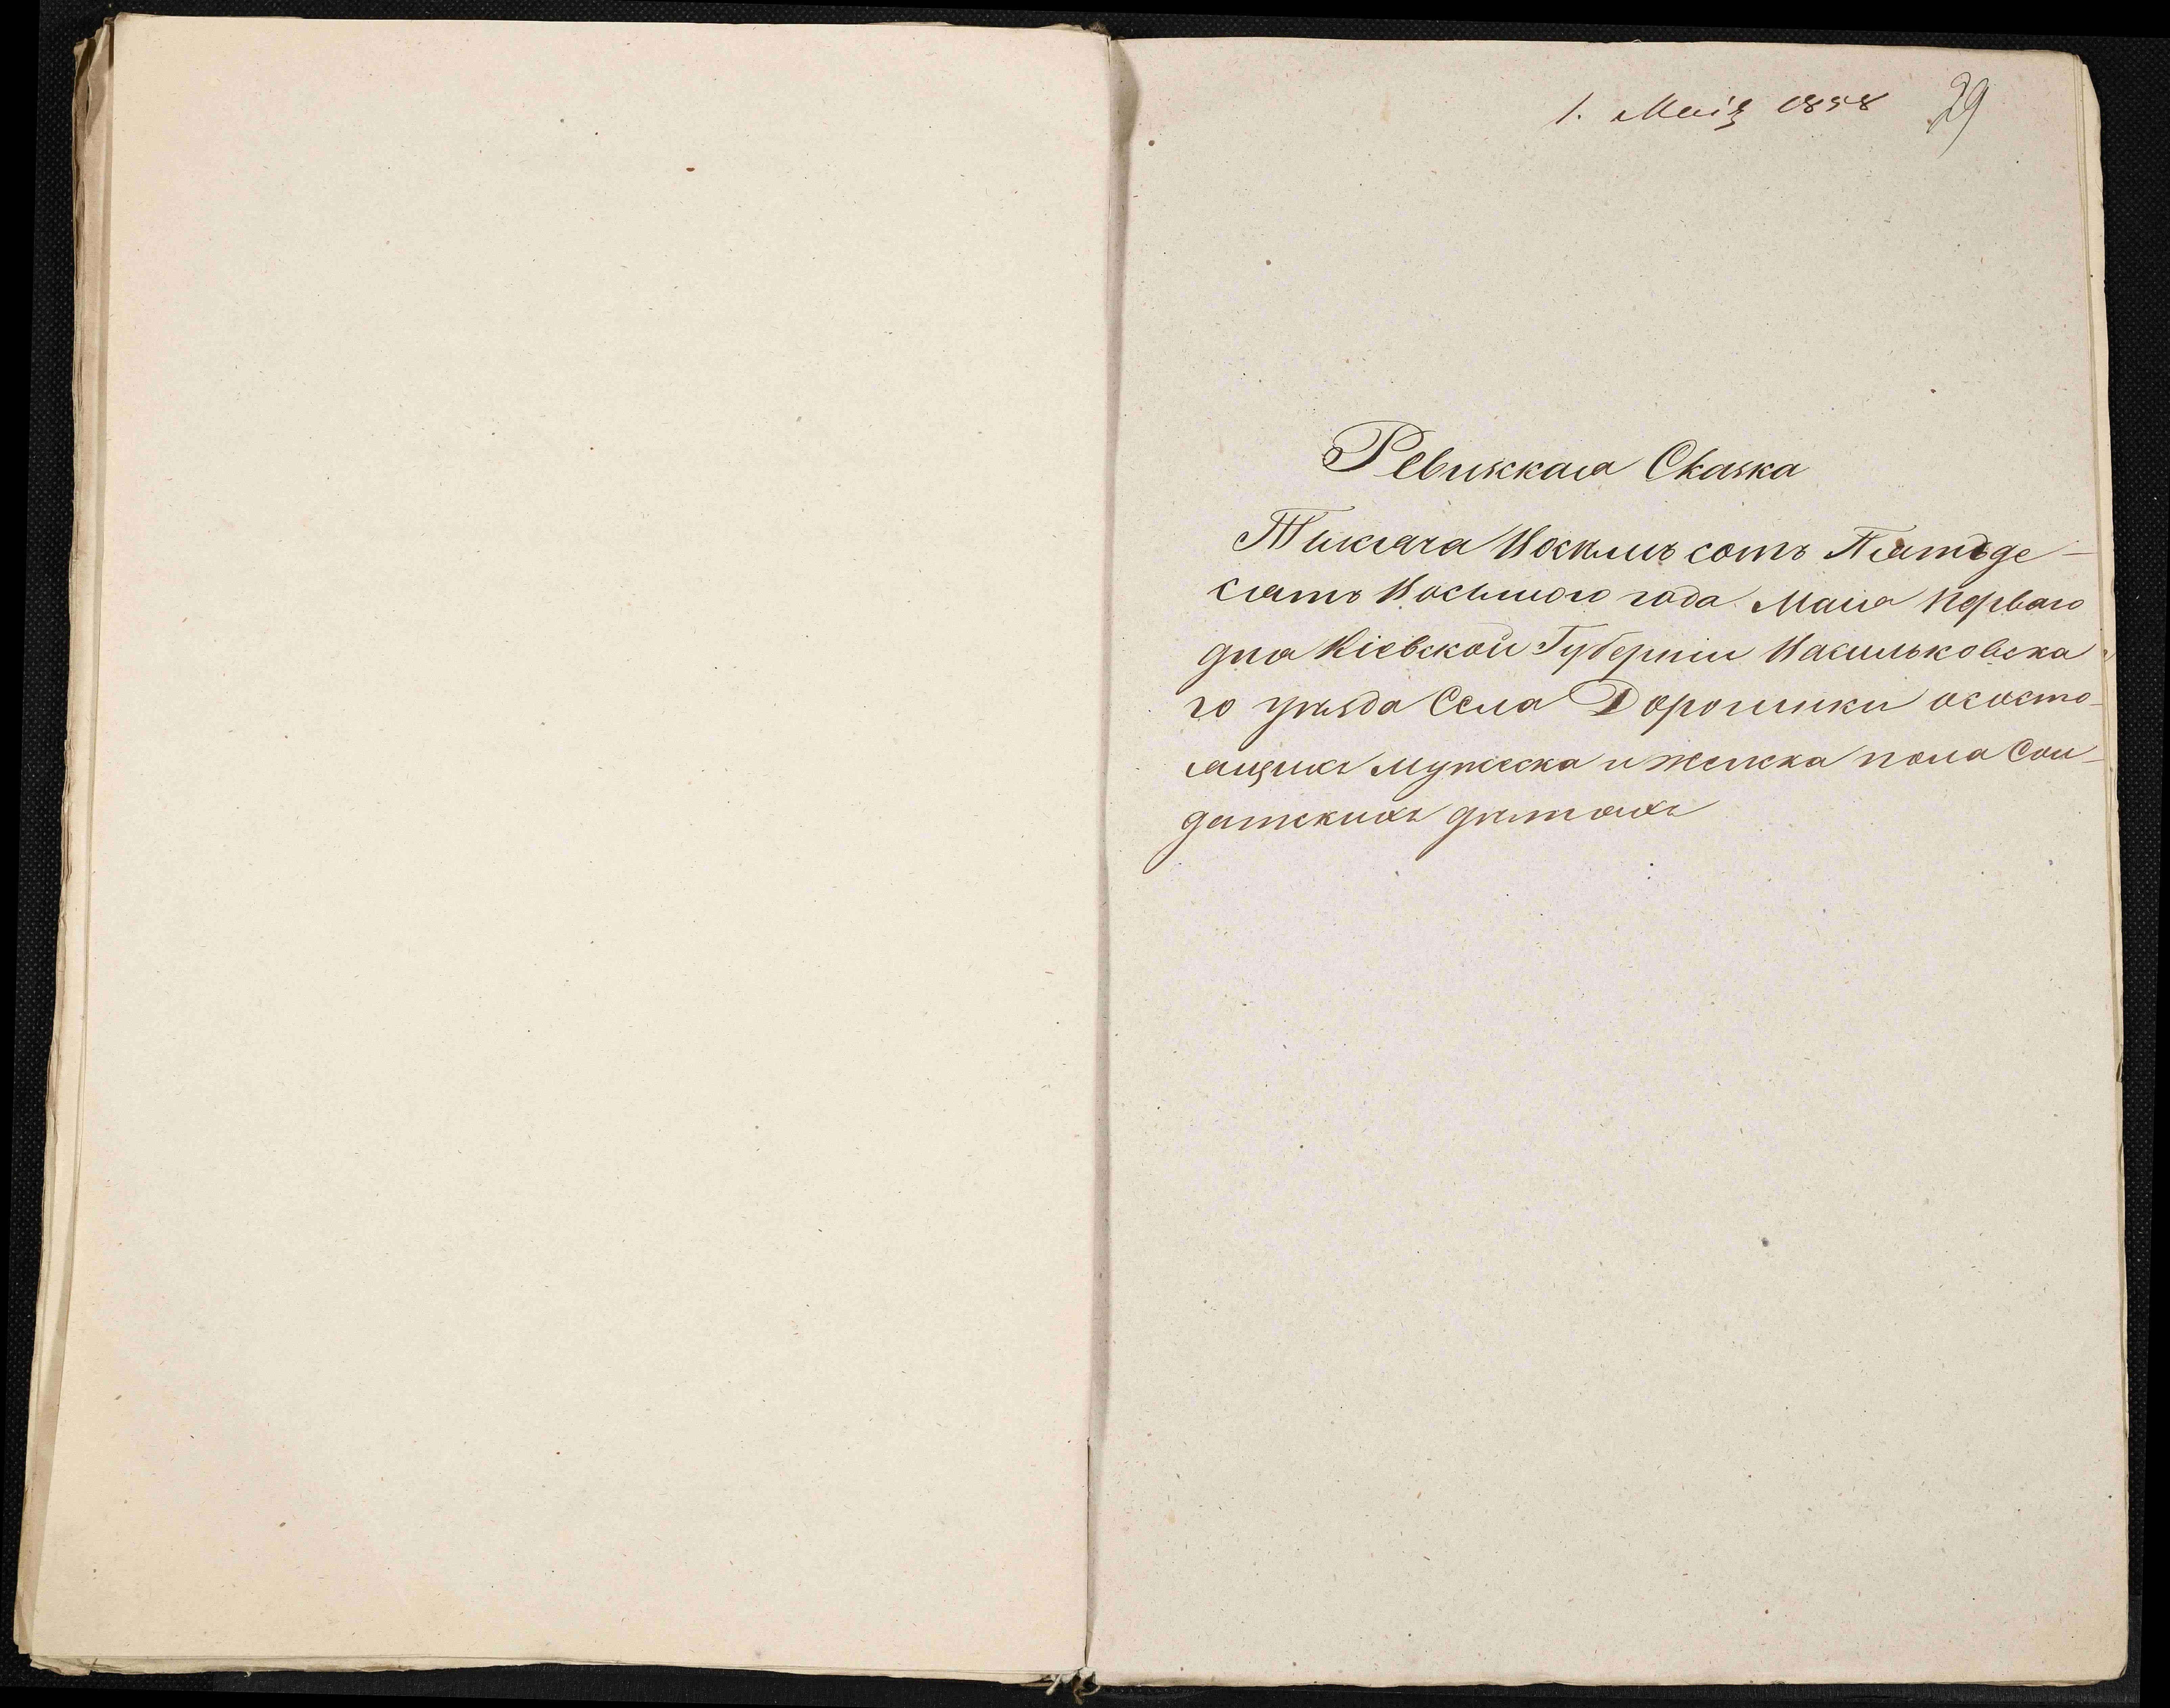 1. Маія 1858 29
Ревизкая Сказка
Тисяча Восемъ сотъ Пятъде-
сятъ Восьмого года Мая перваго
дня Кіевской Губерніи Васильковска
го уѣзда Села Дорошики ососто-
ящихъ мужеска и женска пола Сол-
датскихъ дѣтяхъ